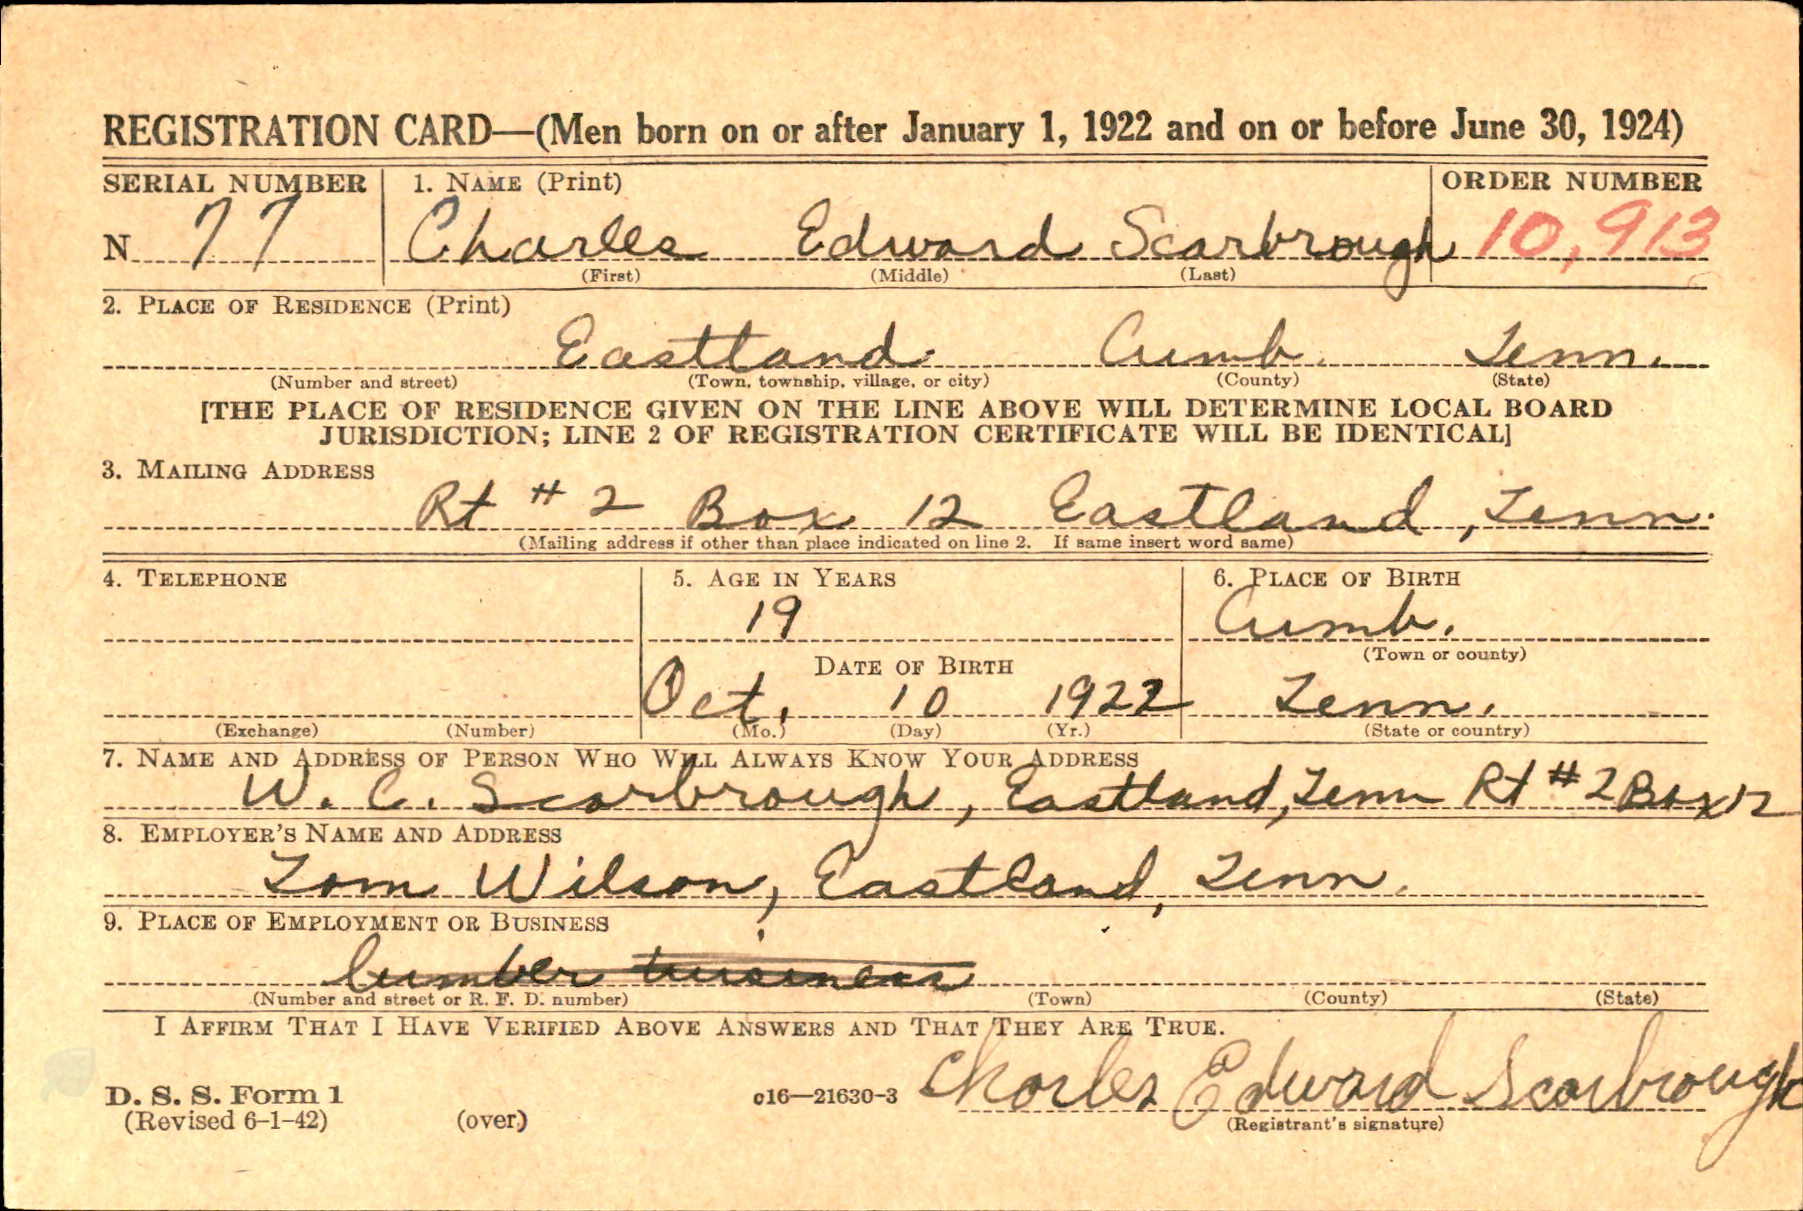 REGISTRATION CARD—(Men born on or after January 1, 1922 and on or before June 30, 1924)
SERIAL NUMBER 1. NAME (Print) ORDER NUMBER
N 77 Charles Edward Scarbrough 10,913
(First) (Middle) (Last)
2. PLACE OF RESIDENCE (Print)
Eastland Cumb. Tenn.
(Number and street) (Town, township, village, or city) (County) (State)
[THE PLACE OF RESIDENCE GIVEN ON THE LINE ABOVE WILL DETERMINE LOCAL BOARD
JURISDICTION; LINE 2 OF REGISTRATION CERTIFICATE WILL BE IDENTICAL]
3. MAILING ADDRESS
Rt # 2 Box 12 Eastland, Tenn.
(Mailing address if other than place indicated on line 2. If same insert word same)
4. TELEPHONE 5. AGE IN YEARS 6. PLACE OF BIRTH
19 Cumb.
(Town or county)
DATE OF BIRTH
Oct. 10 1922 Tenn.
(Exchange) (Number) (Mo.) (Day) (Yr.) (State or country)
7. NAME AND ADDRESS OF PERSON WHO WILL ALWAYS KNOW YOUR ADDRESS
W. C. Scarbrough, Eastland, Tenn Rt #2 Box 12
8. EMPLOYER'S NAME AND ADDRESS
Tom Wilson, Eastland, Tenn.
9. PLACE OF EMPLOYMENT OR BUSINESS
lumber business
(Number and street or R. F. D. number) (Town) (County) (State)
I AFFIRM THAT I HAVE VERIFIED ABOVE ANSWERS AND THAT THEY ARE TRUE.
D. S. S. Form 1 c16—21630-3 Charles Edward Scarbrough
(Revised 6-1-42) (over) (Registrant's signature)